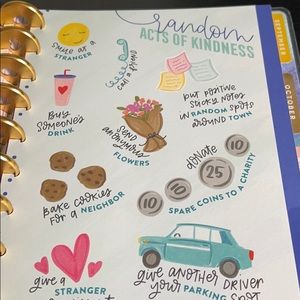 random
ACTS OF KINDNESS
SEPTEMBER
OCTOBER
smile at a
STRANGER
call a friend
put positive
sticky notes
in RANDOM spots
around TOWN
buy
someone's
DRINK
send
anonymous
FLOWERS
donate
10
25
10
10
SPARE COINS TO A CHARITY
bake cookies
for a NEIGHBOR
give a
STRANGER
give another DRIVER
your PARKING